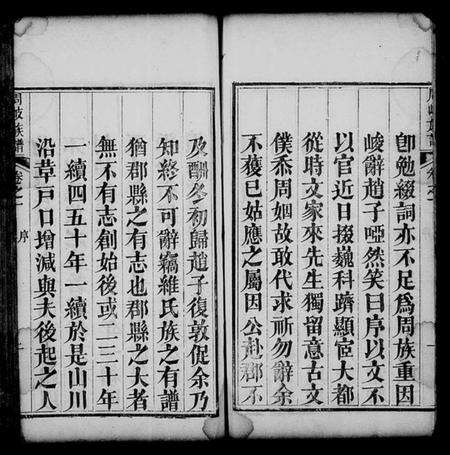 卽勉綴詞亦不足爲周族重因
峻辭趙子啞然笑曰序以文不
以官近日掇巍科躋顯宦大都
從時文家來先生獨留意古文
僕忝周姻故敢代求祈勿辭余
不獲已姑應之屬因公赴郡不
及酬冬初歸趙子復敦促余乃
知終不可辭竊維氏族之有譜
猶郡縣之有志也郡縣之大者
無不有志創始後或二三十年
一續四五十年一續於是山川
沿革戸口增減與夫後起之人
周　族譜
卷之一
序